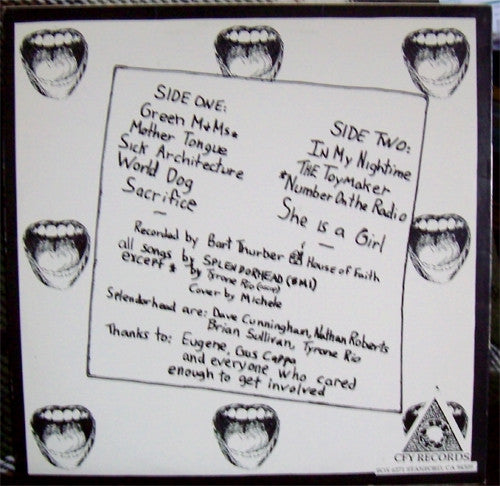 SIDE ONE:
Green M+Ms*
Mother Tongue
Sick Architecture
World Dog
Sacrifice
SIDE TWO:
IN My Nightime
THE Toymaker
*Number On the Radio
She is a Girl
Recorded by Bart Thurber House of Faith
all songs by SPLENDORHEAD (BMI)
excert * by Tyrone Rio
Cover by Michele
Splendorhead are: Dave Cunningham, Nathan Roberts
Brian Sullivan, Tyrone Rio
Thanks to: Eugene, Gus Cappa
and everyone who cared
enough to get involved
CFY RECORDS
BOX 6271 STANFORD, CA